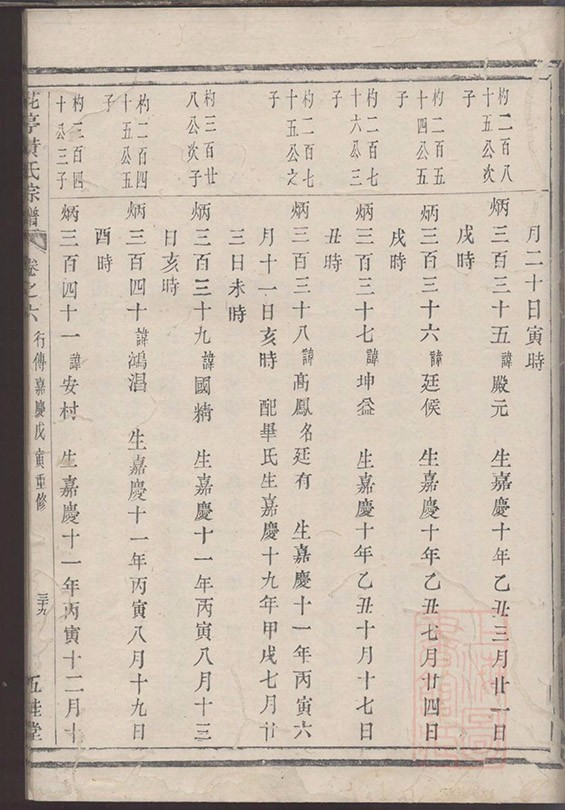 月二十日寅時
杓二百八
十五公次
子
炳三百三十五 諱殿元 生嘉慶十年乙丑三月廿一日
戌時
杓二百五
十四公五
子
炳三百三十六 諱廷侯 生嘉慶十年乙丑七月廿四日
戌時
杓二百七
十六公三
子
炳三百三十七 諱坤益 生嘉慶十年乙丑十月十七日
丑時
杓二百七
十五公之
子
炳三百三十八 諱高鳳名廷有 生嘉慶十一年丙寅六
月十一日亥時 配畢氏生嘉慶十九年甲戌七月廿
三日未時
杓三百廿
八公次子
炳三百三十九 諱國精 生嘉慶十一年丙寅八月十三
日亥時
杓二百四
十五公五
子
炳三百四十 諱鴻淐 生嘉慶十一年丙寅八月十九日
酉時
杓三百四
十公三子
炳三百四十一 諱安村 生嘉慶十一年丙寅十二月十
亭黄氏宗譜 卷之六 行傳嘉慶戊寅重修 三十九 五桂堂